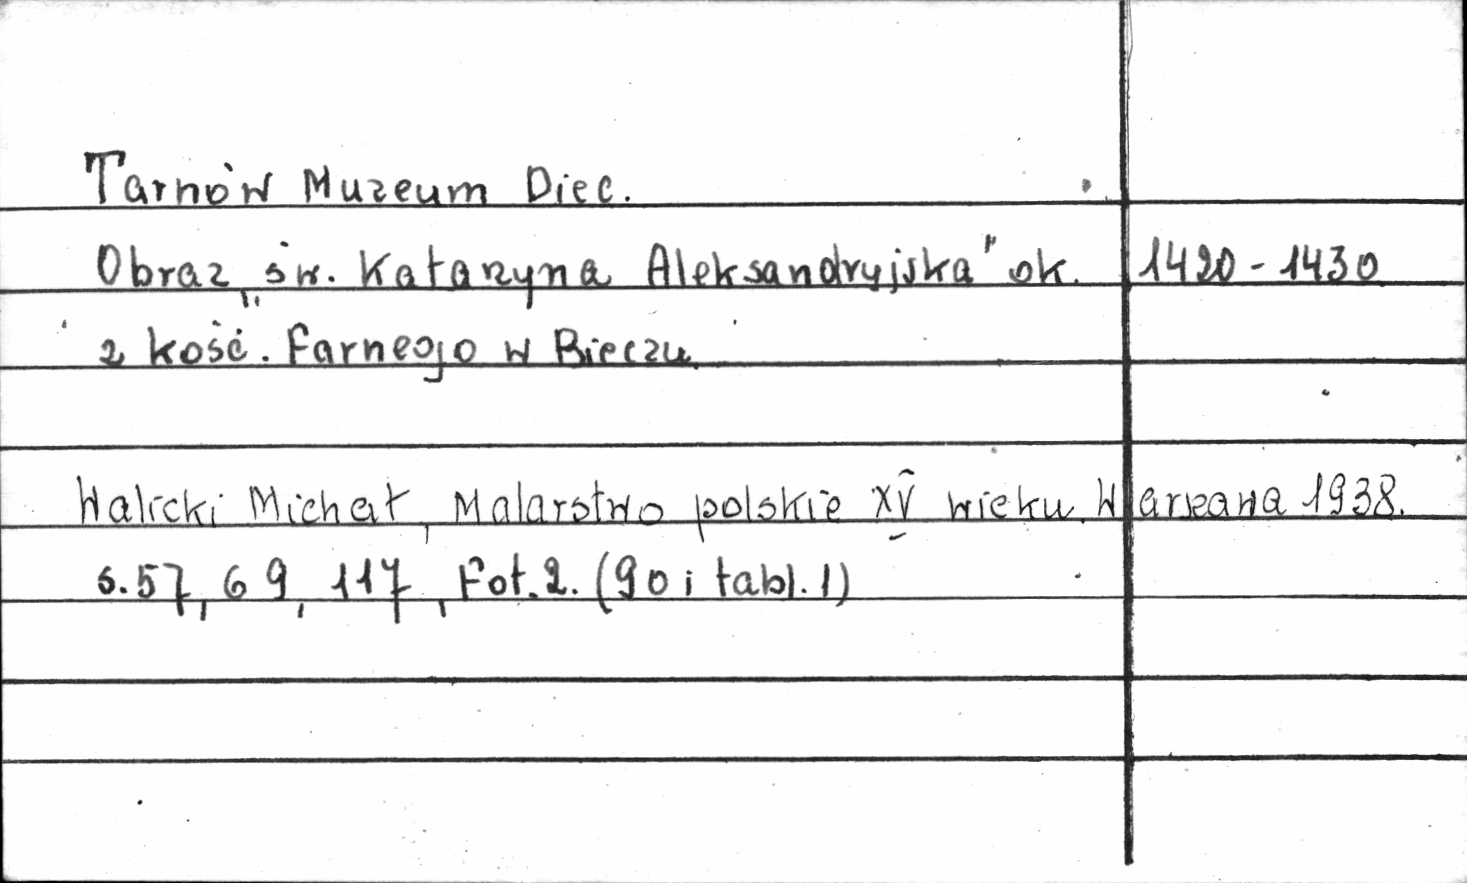 Tarnów Muzeum Diec.
Obraz „św. Katarzyna Aleksandryjska" ok. 1420-1430
z kość. Farnego w Bieczu
Walicki Michał, Malarstwo polskie XV wieku. Warszawa 1938.
s. 57, 69, 117, Fot. 2. (90 i tabl. 1)